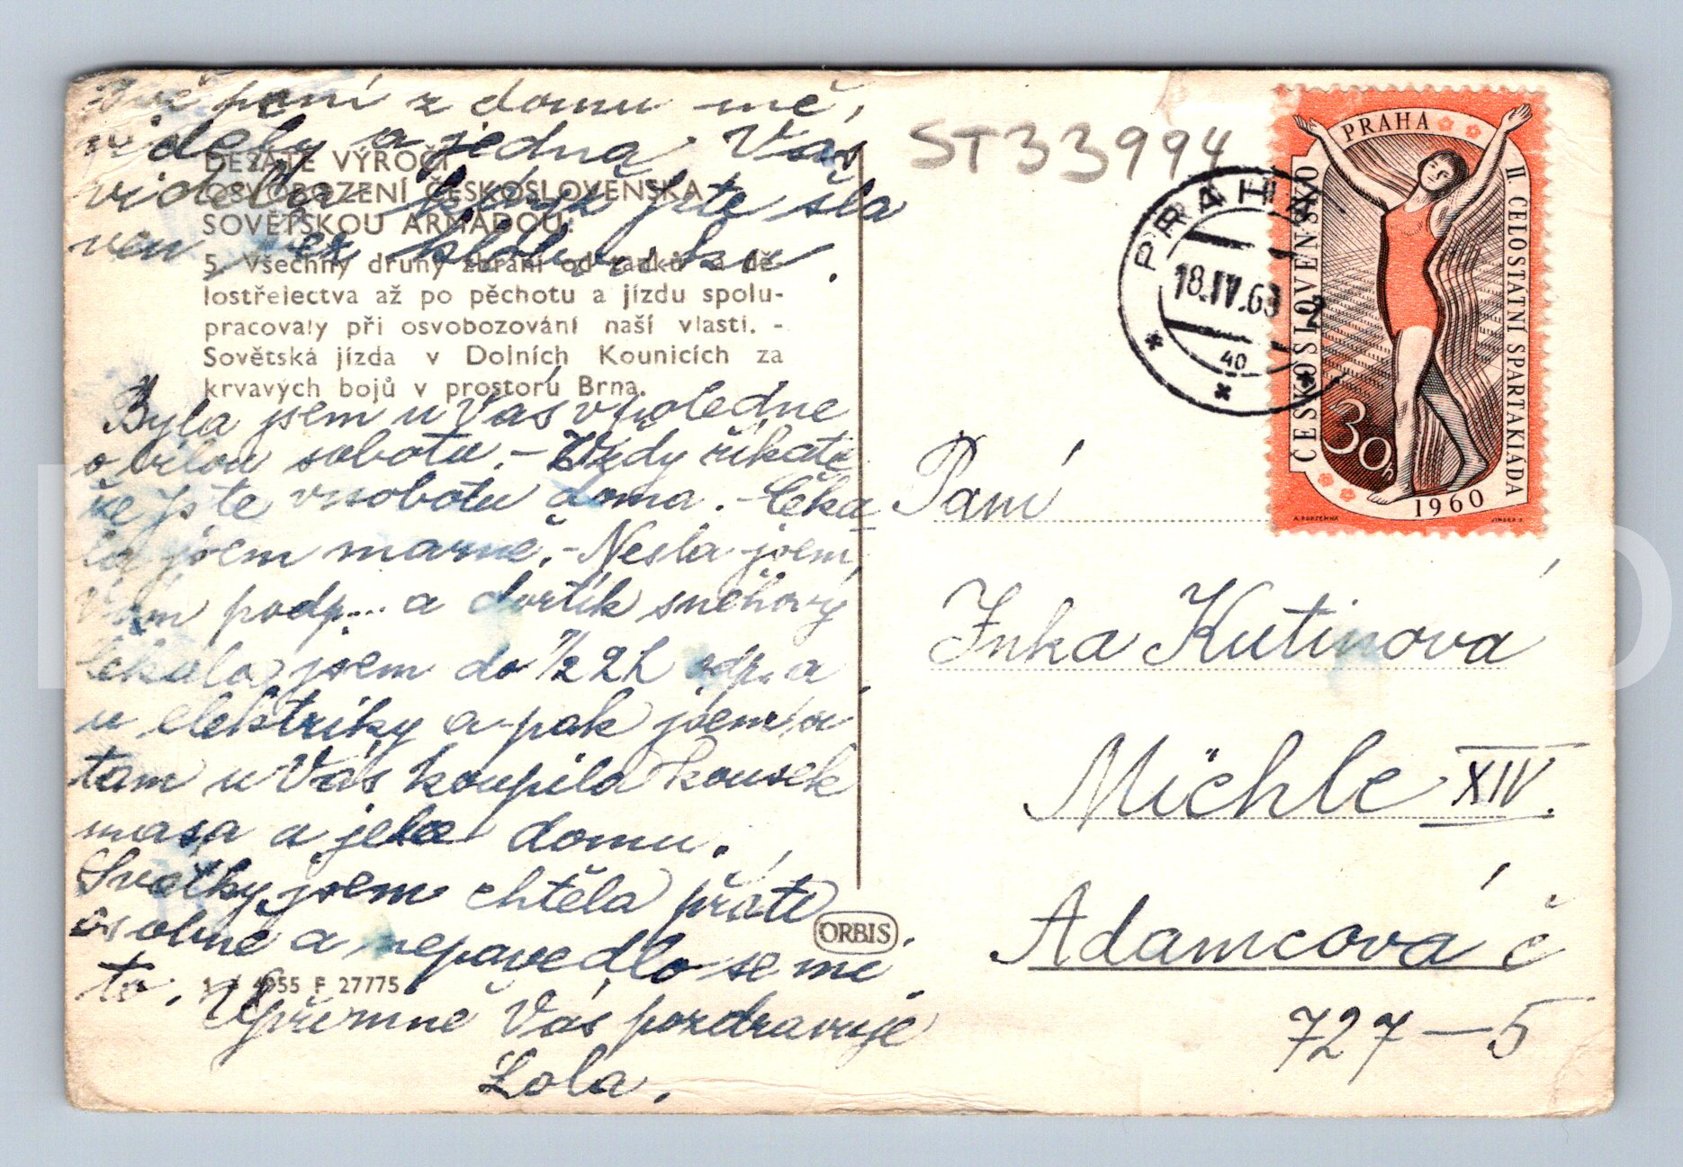 Dvě paní z domu mě,
viděly a jedna Vás
viděla když jste šla
ven
DESÁTÉ VÝROČÍ
OSVOBOZENÍ ČESKOSLOVENSKA
SOVĚTSKOU ARMÁDOU:
5. Všechny druhy zbraní od tanků a dě-
lostřelectva až po pěchotu a jízdu spolu-
pracovaly při osvobozování naší vlasti. -
Sovětská jízda v Dolních Kounicích za
krvavých bojů v prostoru Brna.
Byla jsem u Vás v poledne
o bílou sobotu. - Vždy říkáte
že jste v sobotu doma. - Čeka-
la jsem marně. - Nesla jsem
Vám podp... a dortík sněhový
čekala jsem do 1/2 2h odp. a
u elektriky a pak jsem si
tam u Vás koupila kousek
masa a jela domu.
Svátky jsem chtěla přáti
osobně a nepovedlo se mi
to. Upřímně Vás pozdravuje
Lola.
1 4955 F 27775
ORBIS
ST33994
PRAHA
18.IV.60
2
40
PRAHA
II. CELOSTÁTNÍ SPARTAKIÁDA
1960
ČESKOSLOVENSKO
30h
Paní
Inka Kutinová
Michle XIV.
Adamcová č
727-5